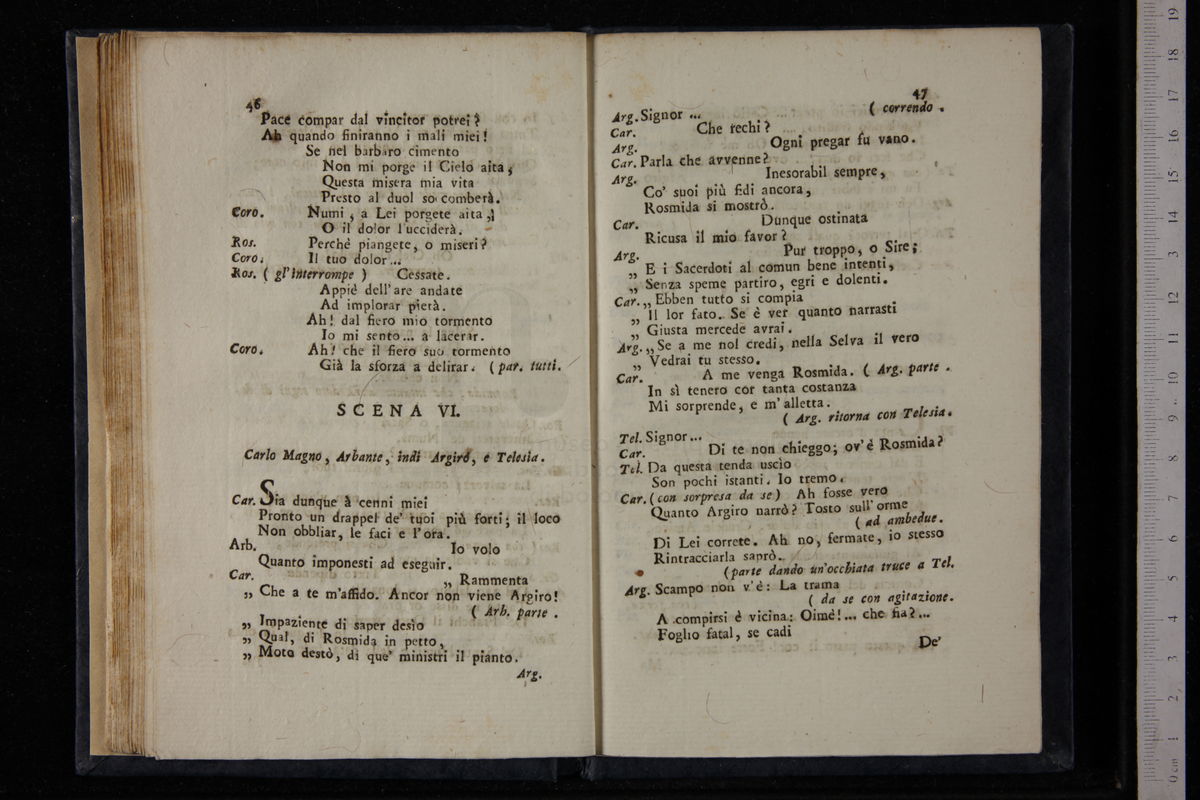 46
Pace compar dal vincitor potrei?
Ah quando finiranno i mali miei!
Se nel barbaro cimento
Non mi porge il Cielo aita,
Questa misera mia vita
Presto al duol soccomberà.
Coro. Numi, a Lei porgete aita,
O il dolor l'ucciderà.
Ros. Perchè piangete, o miseri?
Coro. Il tuo dolor...
Ros. ( gl'interrompe ) Cessate.
Appiè dell'are andate
Ad implorar pietà.
Ah! dal fiero mio tormento
Io mi sento... a lacerar.
Coro. Ah! che il fiero suo tormento
Già la sforza a delirar. (par. tutti.
SCENA VI.
Carlo Magno, Arbante, indi Argiro, e Telesia.
Car. Sia dunque à cenni miei
Pronto un drappel de' tuoi più forti; il loco
Non obbliar, le faci e l'ora.
Arb. Io volo
Quanto imponesti ad eseguir.
Car. „ Rammenta
„ Che a te m'affido. Ancor non viene Argiro!
( Arb. parte .
„ Impaziente di saper desìo
„ Qual, di Rosmida in petto,
„ Moto destò, di que' ministri il pianto.
Arg.
47
Arg. Signor ... ( correndo .
Car. Che rechi?
Arg. Ogni pregar fu vano.
Car. Parla che avvenne?
Arg. Inesorabil sempre,
Co' suoi più fidi ancora,
Rosmida si mostrò.
Car. Dunque ostinata
Ricusa il mio favor?
Arg. Pur troppo, o Sire;
„ E i Sacerdoti al comun bene intenti,
„ Senza speme partiro, egri e dolenti.
Car. „ Ebben tutto si compia
„ Il lor fato. Se è ver quanto narrasti
„ Giusta mercede avrai.
Arg. „ Se a me nol credi, nella Selva il vero
„ Vedrai tu stesso.
Car. A me venga Rosmida. ( Arg. parte .
In sì tenero cor tanta costanza
Mi sorprende, e m'alletta.
( Arg. ritorna con Telesia.
Tel. Signor...
Car. Di te non chieggo; ov'è Rosmida?
Tel. Da questa tenda uscìo
Son pochi istanti. Io tremo.
Car. (con sorpresa da se) Ah fosse vero
Quanto Argiro narrò? Tosto sull'orme
( ad ambedue.
Di Lei correte. Ah no, fermate, io stesso
Rintracciarla saprò.
(parte dando un'occhiata truce a Tel.
Arg. Scampo non v'è: La trama
( da se con agitazione.
A compirsi è vicina: Oimè!... che fia?...
Foglio fatal, se cadi
De'
0 cm 1 2 3 4 5 6 7 8 9 10 11 12 13 14 15 16 17 18 19